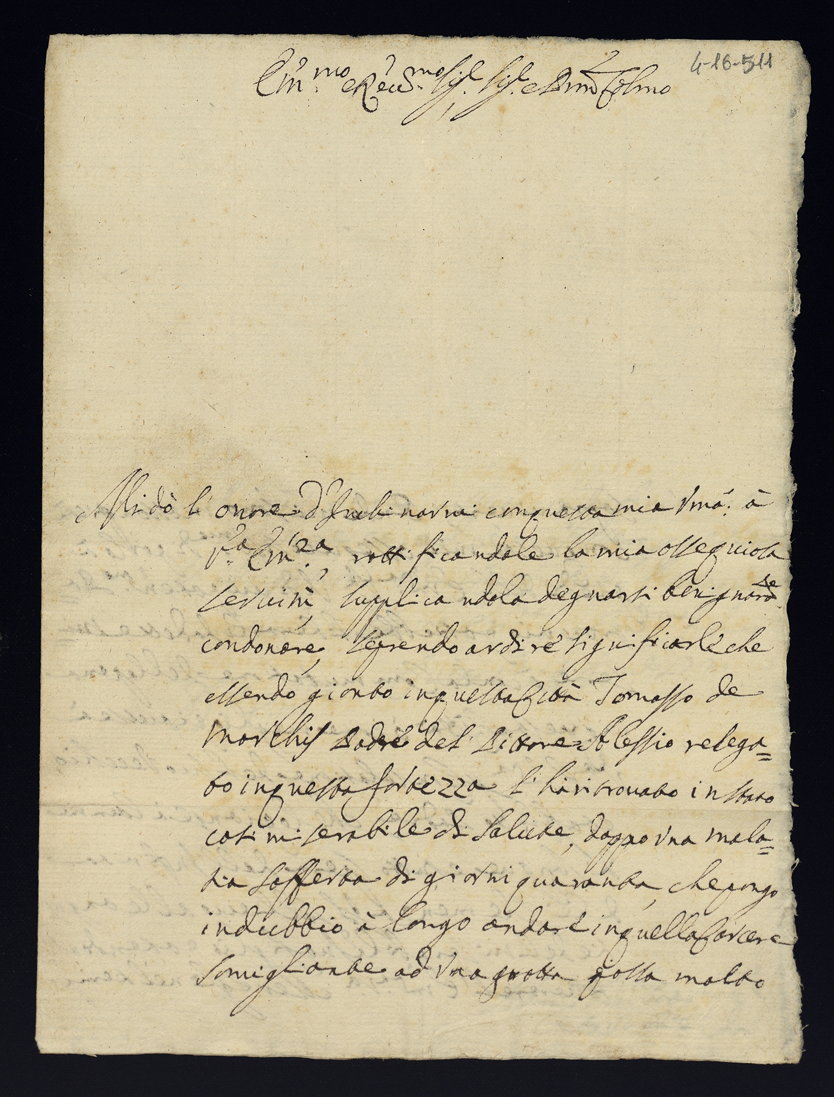 4-16-511
Em.mo e Reu.mo Sig.e Sig.e e Pron Colmo
Mi dò l' onore d'Inchinarmi con questa mia Vmã: à
V.ra Em.za rattificandole la mia ossequiosa
seruitù, supplicandola degnarsi benignam.te
condonare, se prendo ardire significarle che
essendo gionto in questa Città Tomasso de
Marchis Padre del Pittore Alessio relega=
to in questa fortezza l' hà ritrouato in stato
così miserabile di salute, doppo Vna mala=
tia sofferta di giorni quaranta, che pongo
in dubbio à longo andare in quella Carcere
somigliante ad Vna grotta possa molto